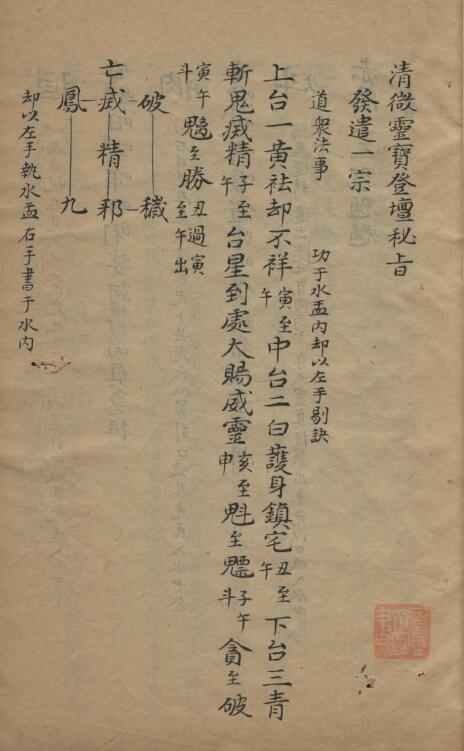 清微靈寶登壇秘旨
發遣一宗
道衆法事 功于水盂內却以左手剔訣
上台一黃祛却不祥寅至午中台二白護身鎮宅丑至午下台三青
斬鬼滅精子至午台星到處大賜威靈亥至申魁至魒子午斗貪至破
寅午斗魒至勝丑過寅至午出
破 穢
亡 滅 精 邪
鳳 九
却以左手執水盂右手書于水內